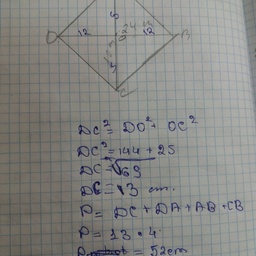 5
D 12 24 12 B
5
C
DC² = DO² + OC²
DC² = 144 + 25
DC = √169
DC = 13 cm.
P = DC + DA + AB + CB
P = 13 · 4
= 52cm